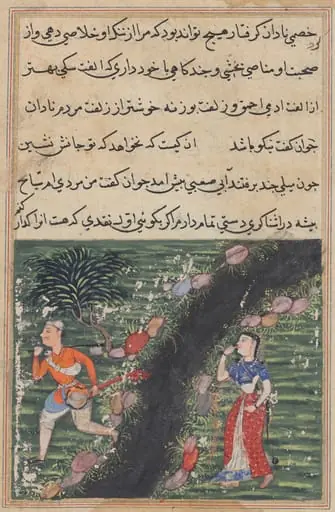 خصی نادان گرفتار هیچ تواند بود که مرا از ننگ او خلاصی دهی و از
صحبت او مناصی بخشی و چند گاهی با خود داری که الفت سکی بهتر
از الفت ادمی احمق و زلفت بوزنه خوشتر از زلفت مردم نادان
جوان گفت نیکو باشد ان کیست که نخواهد که تو جانش نشین
چون میلی چند برفتند آبی صعب پیش امد جوان گفت من مردی ام سیاح
پیشه در اشنا کری دستی تمام دارم اگر بگوئی اول نقدی که هست از آب گذار
کنم